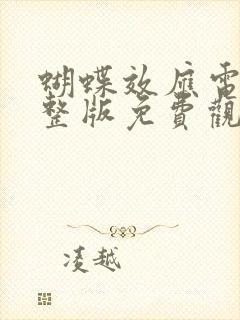 蝴蝶效應電
整版免費觀
凌越